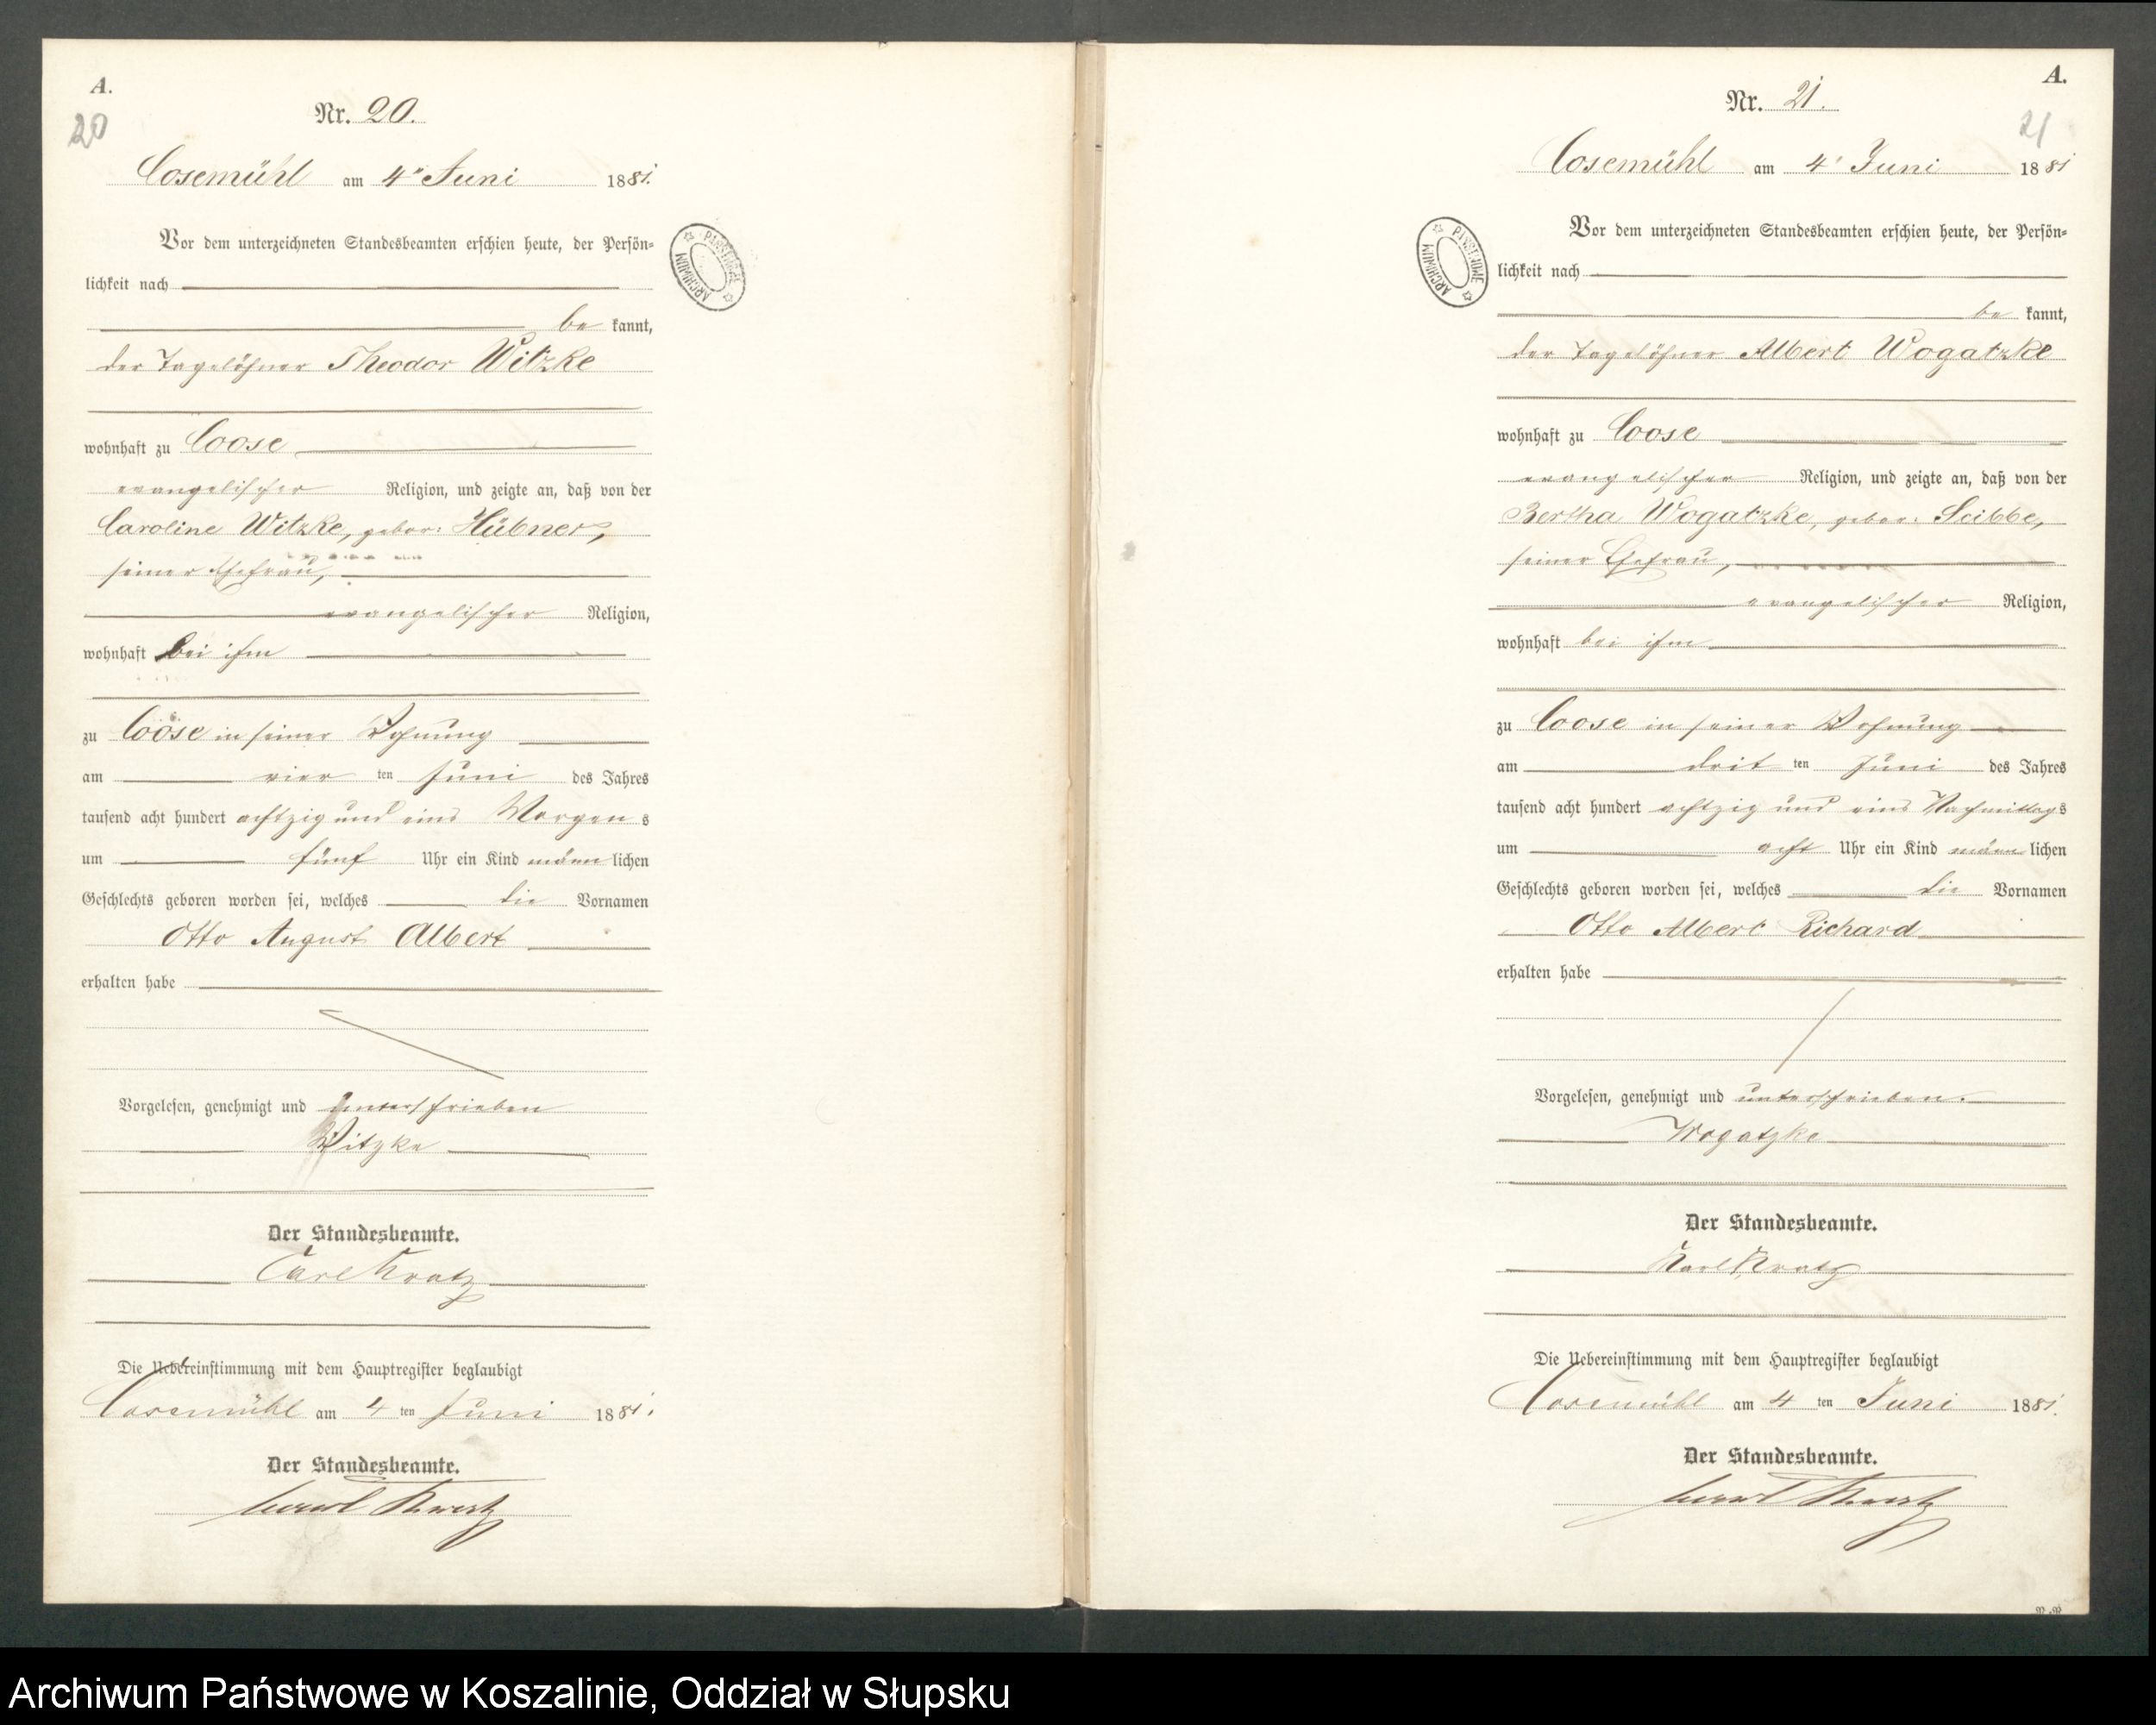 A.
20
Nr. 20.
Cosemühl am 4" Juni 1881.
Vor dem unterzeichneten Standesbeamten erschien heute, der Persön=
lichkeit nach
be kannt,
der Tagelöhner Theodor Witzke
wohnhaft zu Coose
evangelischer Religion, und zeigte an, daß von der
Caroline Witzke, gebor: Hübner,
seiner Ehefrau,
evangelischer Religion,
wohnhaft bei ihm
zu Coose in seiner Wohnung
am vier ten Juni des Jahres
tausend acht hundert achtzig und eins Morgens
um fünf Uhr ein Kind männlichen
Geschlechts geboren worden sei, welches die Vornamen
Otto August Albert
erhalten habe
Vorgelesen, genehmigt und unterschrieben
Witzke
Der Standesbeamte.
Carl Kratz
Die Uebereinstimmung mit dem Hauptregister beglaubigt
Cosemühl am 4 ten Juni 1881.
Der Standesbeamte.
ARCHIWUM PAŃSTWOWE
A.
21
Nr. 21.
Cosemühl am 4' Juni 1881
Vor dem unterzeichneten Standesbeamten erschien heute, der Persön=
lichkeit nach
be kannt,
der Tagelöhner Albert Wogatzke
wohnhaft zu Coose
evangelischer Religion, und zeigte an, daß von der
Bertha Wogatzke, gebor: Scibbe,
seiner Ehefrau,
evangelischer Religion,
wohnhaft bei ihm
zu Coose in seiner Wohnung
am drit ten Juni des Jahres
tausend acht hundert achtzig und eins Nachmittags
um acht Uhr ein Kind männlichen
Geschlechts geboren worden sei, welches die Vornamen
Otto Albert Richard
erhalten habe
Vorgelesen, genehmigt und unterschrieben.
Wogatzke
Der Standesbeamte.
Karl Kratz
Die Uebereinstimmung mit dem Hauptregister beglaubigt
Cosemühl am 4 ten Juni 1881.
Der Standesbeamte.
ARCHIWUM PAŃSTWOWE
Archiwum Państwowe w Koszalinie, Oddział w Słupsku